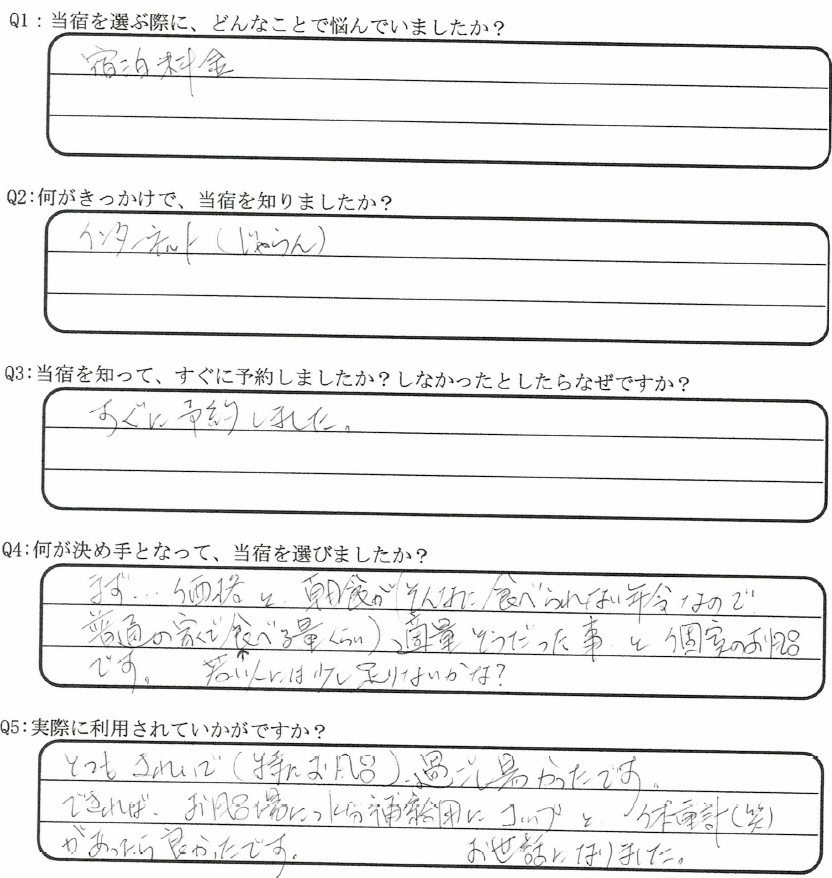 Q1：当宿を選ぶ際に、どんなことで悩んでいましたか？
宿泊料金
Q2:何がきっかけで、当宿を知りましたか？
インターネット（じゃらん）
Q3:当宿を知って、すぐに予約しましたか？しなかったとしたらなぜですか？
すぐに予約しました。
Q4:何が決め手となって、当宿を選びましたか？
まず…価格と、朝食が（そんなに食べられない年令なので
普通の家で食べる量くらい）適量そうだった事と個室のお風呂
です。 若い人には少し足りないかな？
Q5:実際に利用されていかがですか？
とてもきれいで（特にお風呂）、過ごし易かったです。
できれば、お風呂場に水分補給用にコップと、体重計（笑）
があったら良かったです。 お世話になりました。